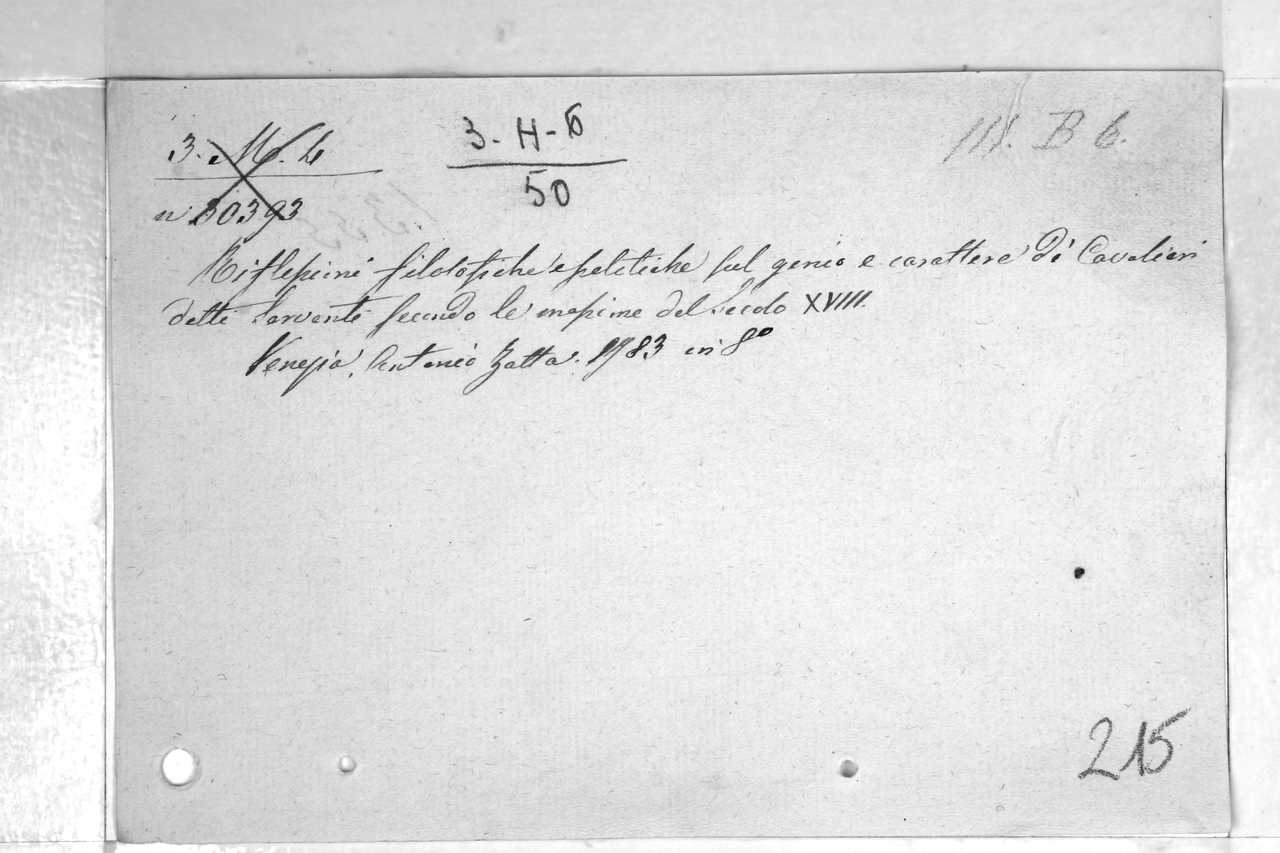 3. M. L
3-H-6
III. B 6.
n 30393
50
Riflessioni filosofiche e politiche sul genio e carattere di Cavalieri
detti Serventi secondo le massime del Secolo XVIII.
Venezia, Antonio Zatta. 1783 in 8º
215